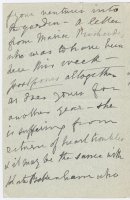 your ventures into
the garden - a letter
from Marie
who was to have been
here this week -
postpones altogether
as goes for
another year - she
is suffering from
return of heart trouble
& it may be the same with
who